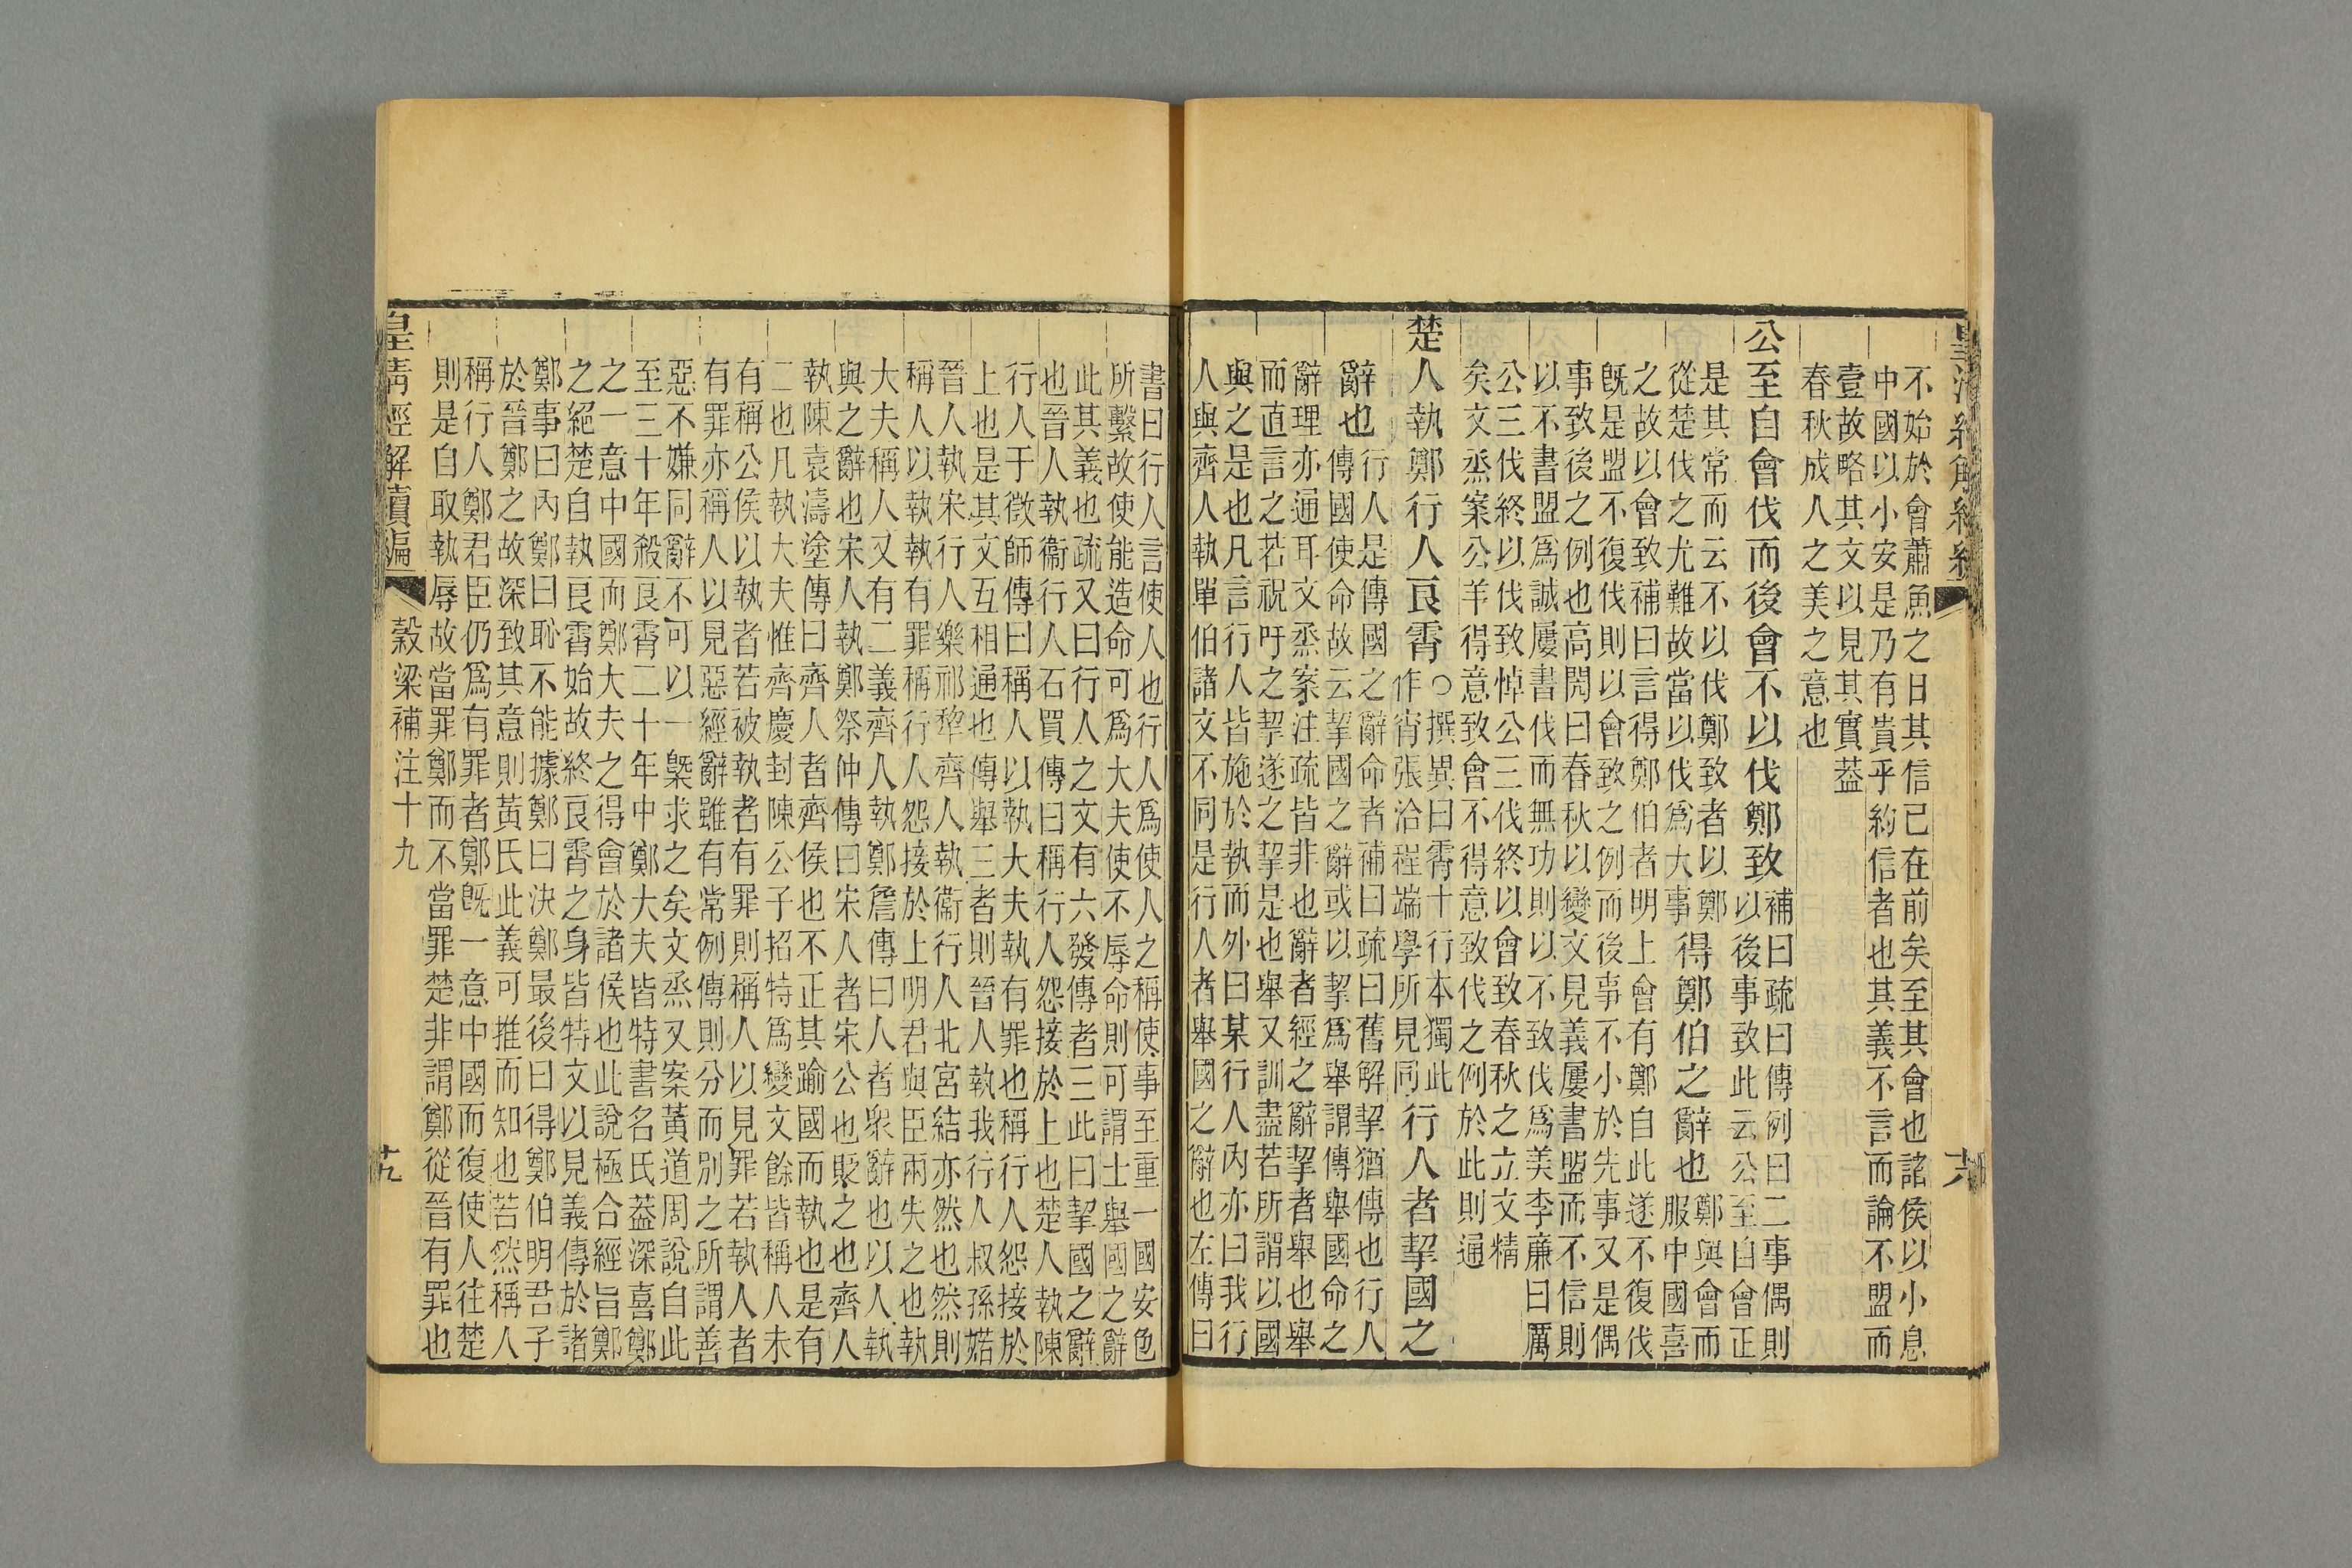 不始於會蕭魚之日其信已在前矣至其會也諸侯以小息
中國以小安是乃有貴乎約信者也其義不言而論不盟而
壹故略其文以見其實葢
春秋成人之美之意也
公至自會伐而後會不以伐鄭致
補曰疏曰傳例曰二事偶則
以後事致此云公至自會正
是其常而云不以伐鄭致者以鄭
從楚伐之尤難故當以伐爲大事
得鄭伯之辭也
鄭與會而
服中國喜
之故以會致補曰言得鄭伯者明上會有鄭自此遂不復伐
旣是盟不復伐則以會致之例而後事不小於先事又是偶
事致後之例也高閌曰春秋以變文見義屢書盟而不信則
以不書盟爲誠屢書伐而無功則以不致伐爲美李廉曰厲
公三伐終以伐致悼公三伐終以會致春秋之立文精
矣文烝案公羊得意致會不得意致伐之例於此則通
楚人執鄭行人良霄
○撰異曰霄十行本獨此
作宵張洽程端學所見同
行人者挈國之
辭也
行人是傳國之辭命者補曰疏曰舊解挈猶傳也行人
傳國使命故云挈國之辭或以挈爲舉謂傳舉國命之
辭理亦通耳文烝案注疏皆非也辭者經之辭挈者舉也舉
而直言之若祝吁之挈遂之挈是也舉又訓盡若所謂以國
與之是也凡言行人皆施於執而外曰某行人內亦曰我行
人與齊人執單伯諸文不同是行人者舉國之辭也左傳曰
書曰行人言使人也行人爲使人之稱使事至重一國安危
所繫故使能造命可爲大夫使不辱命則可謂士舉國之辭
此其義也疏又曰行人之文有六發傳者三此曰挈國之辭
也晉人執衞行人石買傳曰稱行人怨接於上也楚人執陳
行人于徵師傳曰稱人以執大夫執有罪也稱行人怨接於
上也是其文互相通也傳舉三者則晉人執我行人叔孫婼
晉人執宋行人樂祁犂齊人執衞行人北宮結亦然也然則
稱人以執執有罪稱行人怨接於上明君與臣兩失之也執
大夫稱人又有二義齊人執鄭詹傳曰人者衆辭也以人執
與之辭也宋人執鄭祭仲傳曰宋人者宋公也貶之也齊人
執陳袁濤塗傳曰齊人者齊侯也不正其踰國而執也是有
二也凡執大夫惟齊慶封陳公子招特爲變文餘皆稱人未
有稱公侯以執者若被執者有罪則稱人以見罪若執人者
有罪亦稱人以見惡經辭雖有常例傳則分而別之所謂善
惡不嫌同辭不可以一槩求之矣文烝又案黃道周說自此
至三十年殺良霄二十年中鄭大夫皆特書名氏葢深喜鄭
之一意中國而鄭大夫之得會於諸侯也此說極合經旨鄭
之絕楚自執良霄始故終良霄之身皆特文以見義傳於諸
鄭事曰內鄭曰恥不能據鄭曰決鄭最後曰得鄭伯明君子
於晉鄭之故深致其意則黃氏此義可推而知也若然稱人
稱行人鄭君臣仍爲有罪者鄭旣一意中國而復使人往楚
則是自取執辱故當罪鄭而不當罪楚非謂鄭從晉有罪也
皇淸經解續編
穀梁補注十九